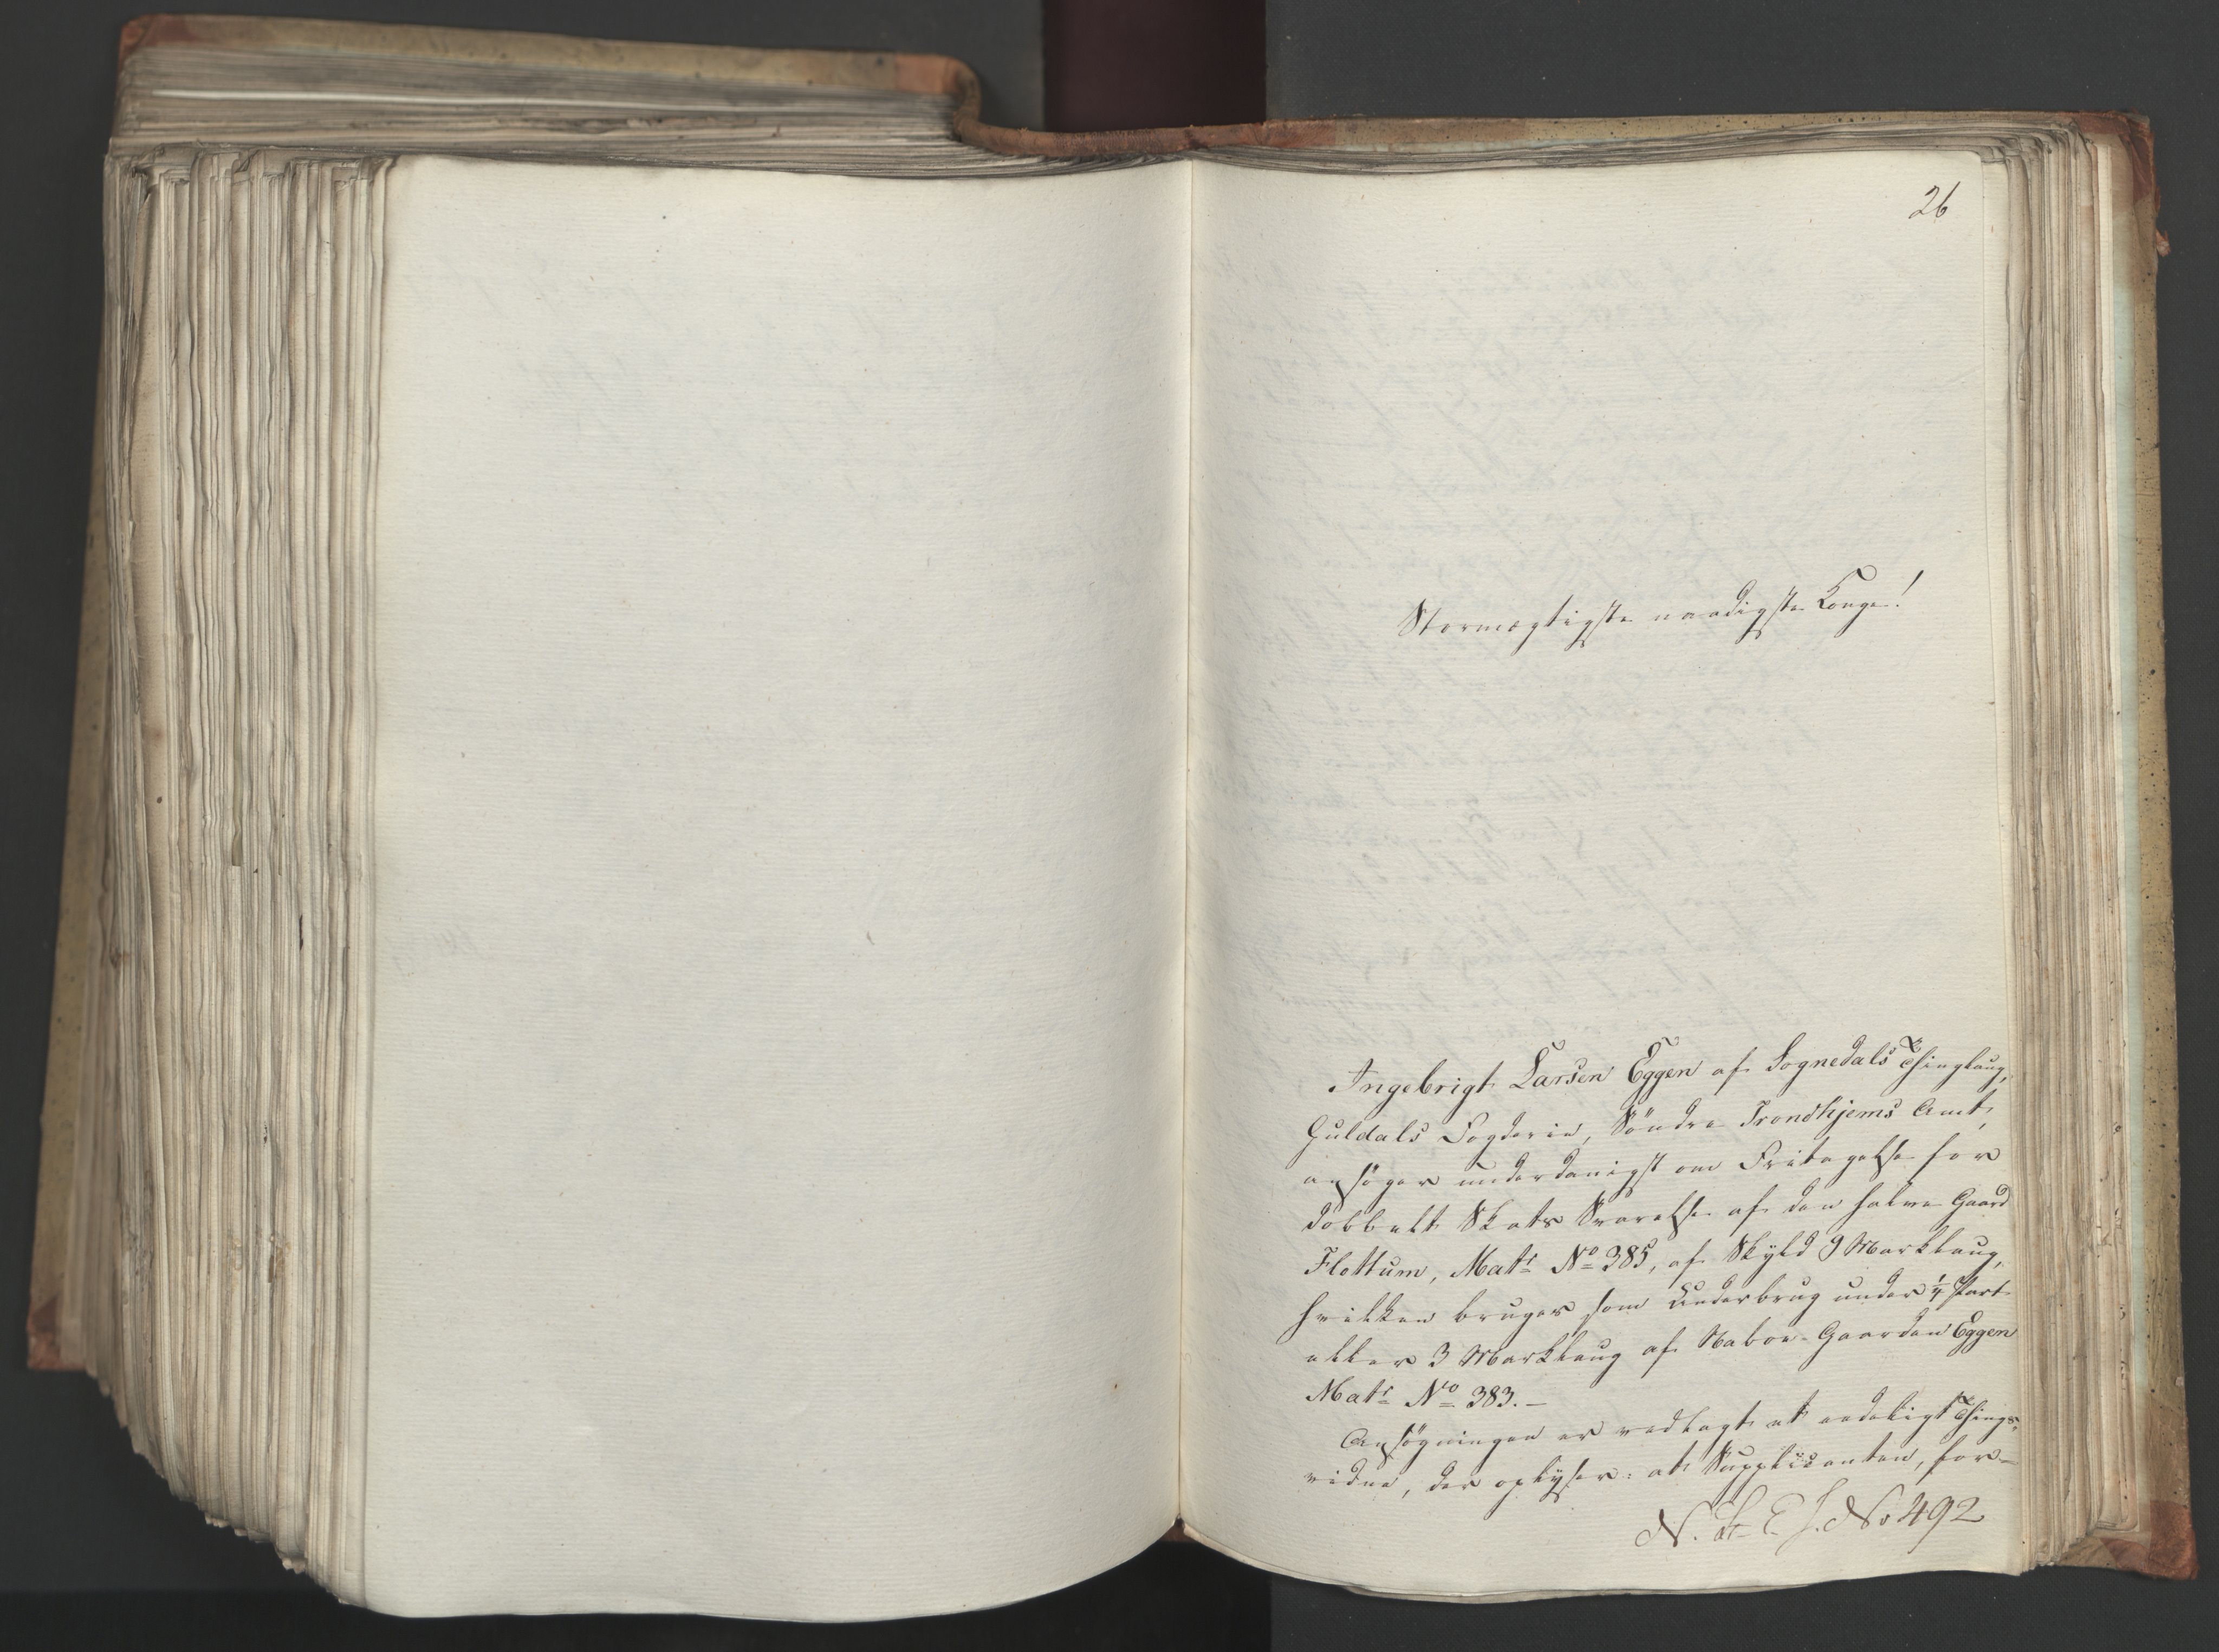 26
Stormægtigste naadigste Konge!
Ingebrigt Larsen Eggen af Sognedals Thinglaug,
Guldals Fogderie, Söndre Trondhjems Amt,
ansöger underdanigst om Fritagelse for
dobbelt Skats Svarelse af den halve Gaard
Flottum, Matr No 385, af Skyld 9 Marklaug,
hvilken bruges som Underbrug under 1/4 Part
eller 3 Marklaug af Naboe-Gaarden Eggen
Matr No 383. –
Ansögningen er vedlagt et eedeligt Things-
vidne, der oplyser: at Supplicanten, for-
No 492